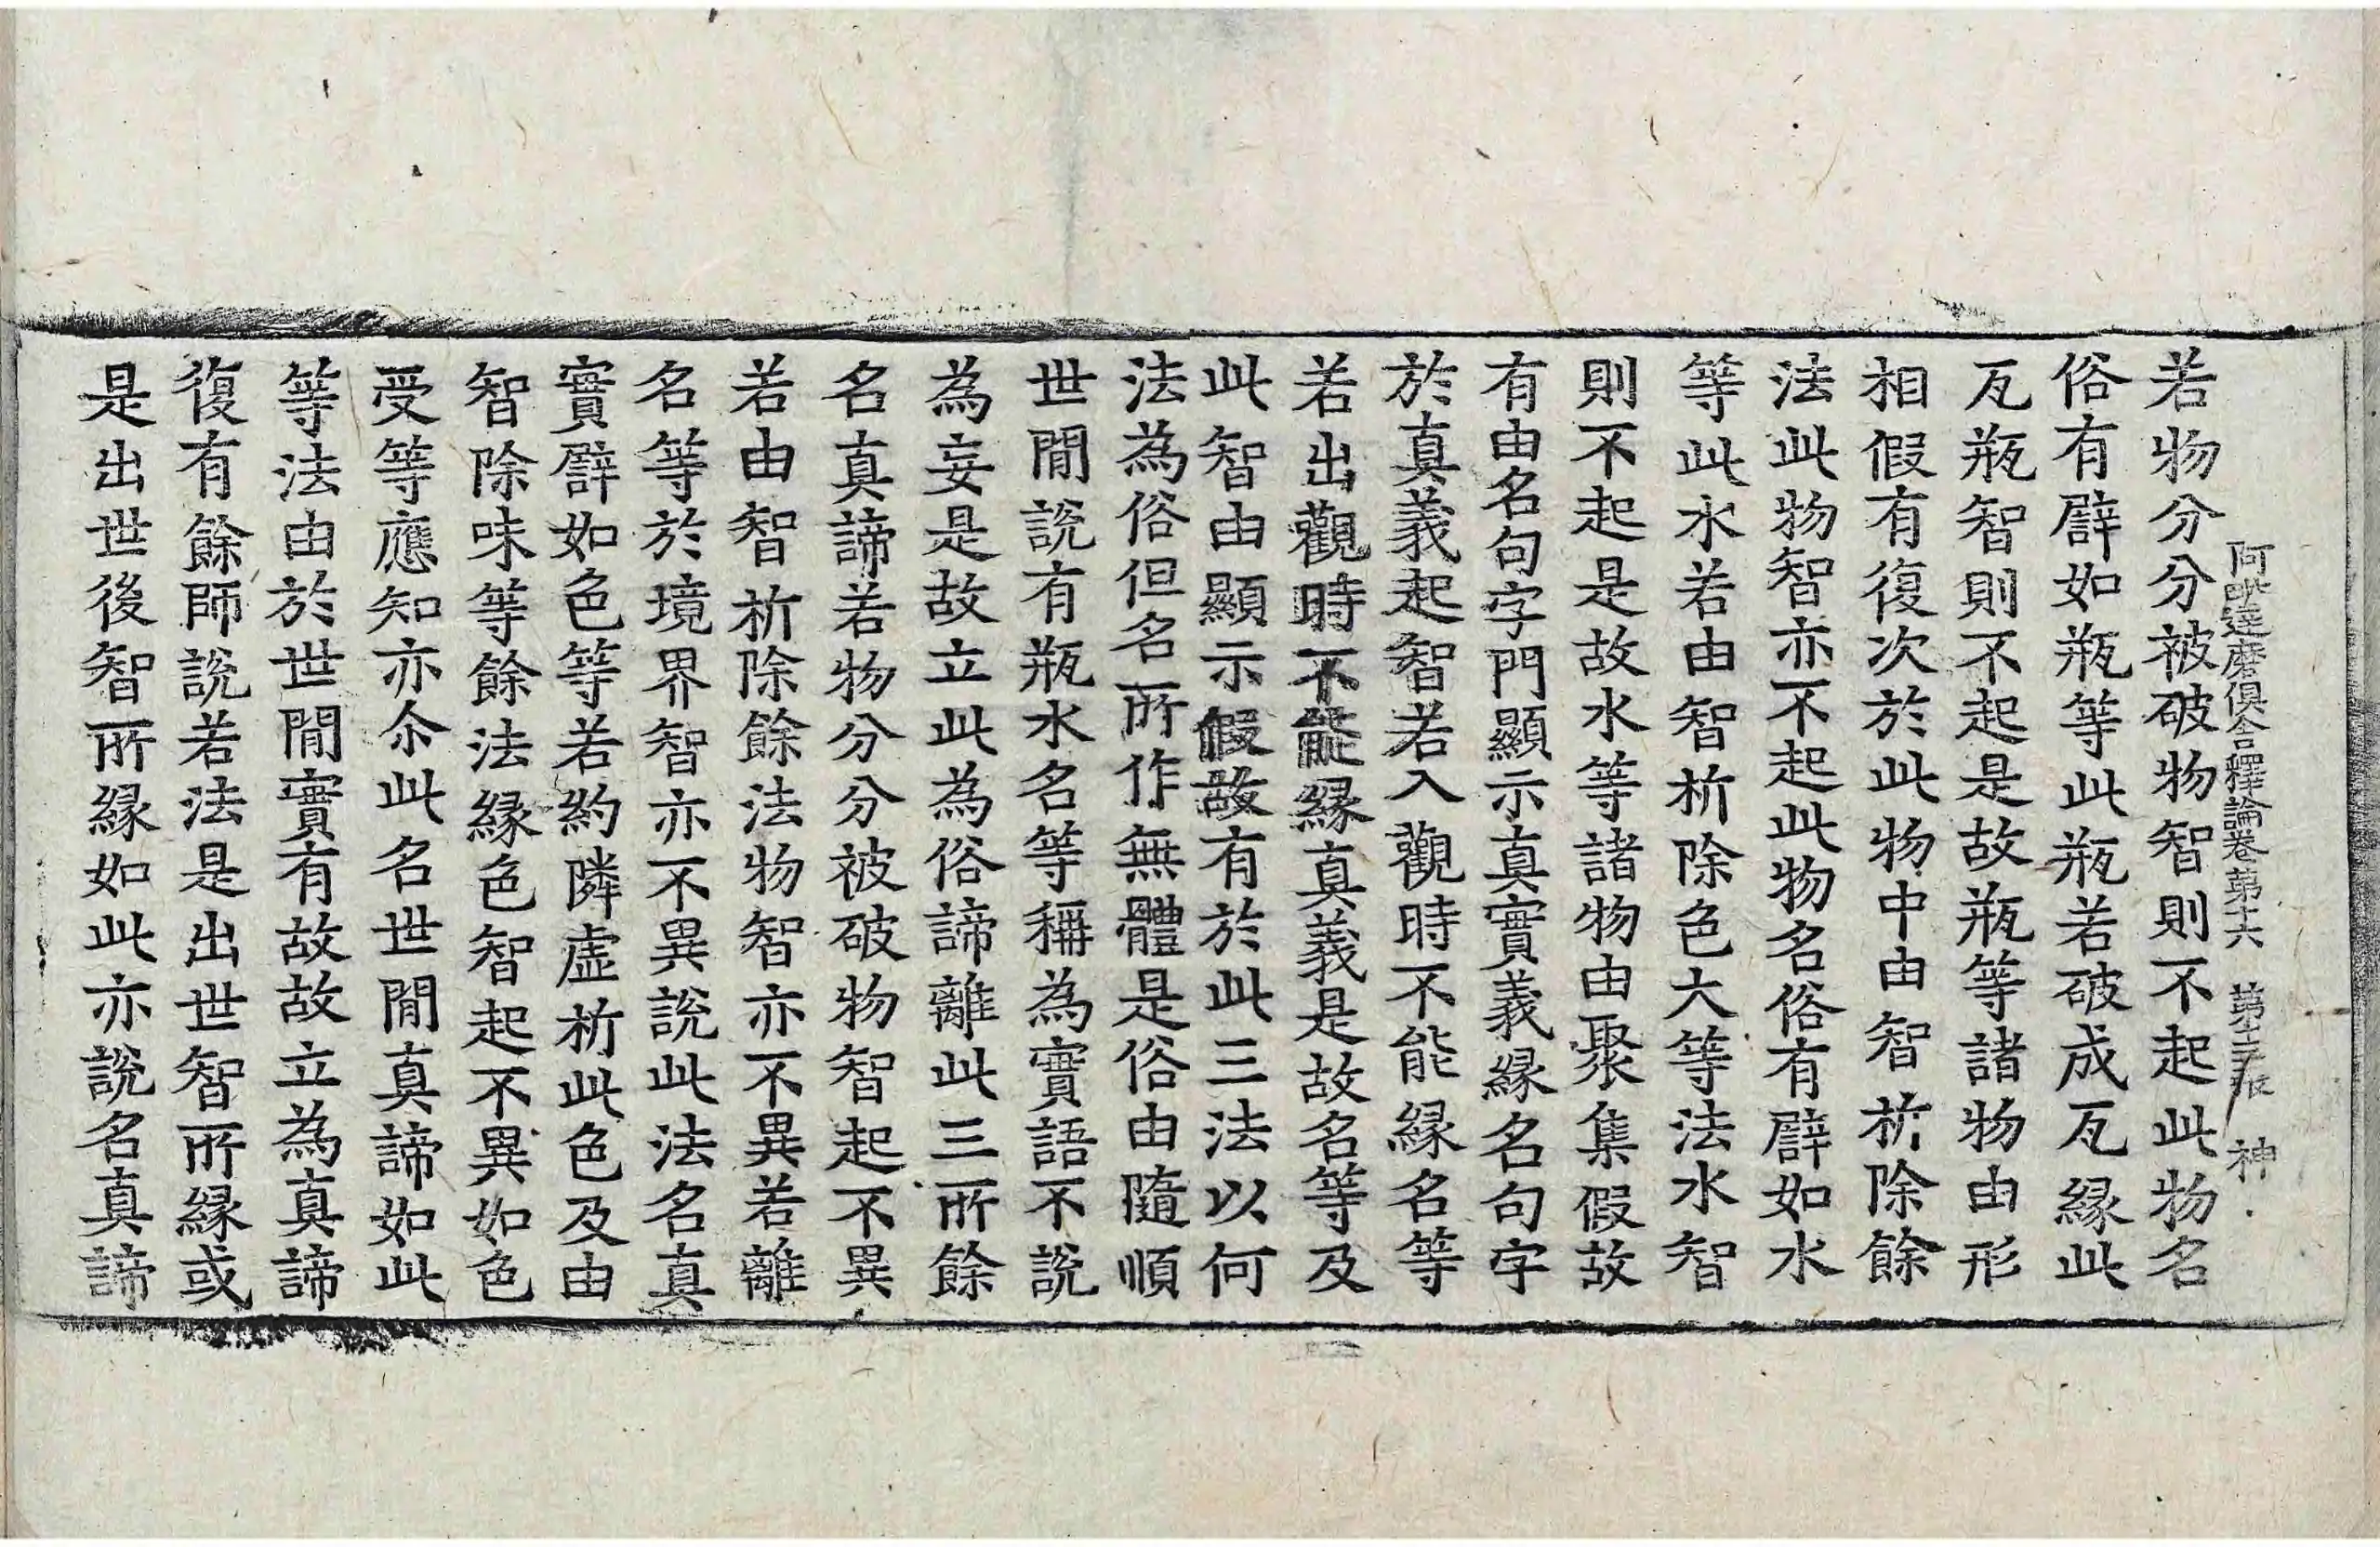 阿毗達磨俱舍釋論卷第十六 第十三張 神
若物分分被破物智則不起此物名
俗有譬如瓶等此瓶若破成瓦緣此
瓦瓶智則不起是故瓶等諸物由形
相假有復次於此物中由智析除餘
法此物智亦不起此物名俗有譬如水
等此水若由智析除色大等法水智
則不起是故水等諸物由聚集假故
有由名句字門顯示真實義緣名句字
於真義起智若入觀時不能緣名等
若出觀時不能緣真義是故名等及
此智由顯示假故有於此三法以何
法為俗但名所作無體是俗由隨順
世間說有瓶水名等稱為實語不說
為妄是故立此為俗諦離此三所餘
名真諦若物分分被破物智起不異
若由智析除餘法物智亦不異若離
名等於境界智亦不異說此法名真
實譬如色等若約隣虛析此色及由
智除味等餘法緣色智起不異如色
受等應知亦尒此名世間真諦如此
等法由於世間實有故故立為真諦
復有餘師說若法是出世智所緣或
是出世後智所緣如此亦說名真諦